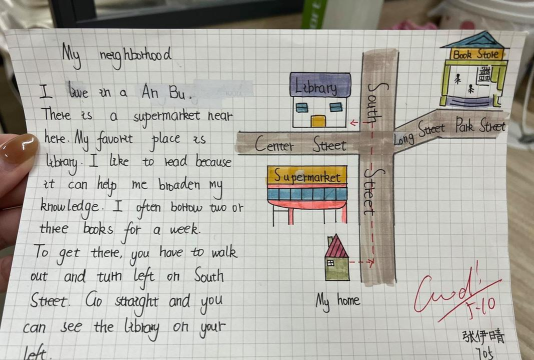 My neighborhood
I live in a An Bu.
There is a supermarket near
here. My favorit place is
library. I like to read because
it can help me broaden my
knowledge. I often borrow two or
three books for a week.
To get there, you have to walk
out and turn left on South
Street. Go straight and you
can see the library on your
left.
Library
South Street
Book Store
Center Street
Long Street
Park Street
Supermarket
My home
Good!
5-10
张伊晴
705